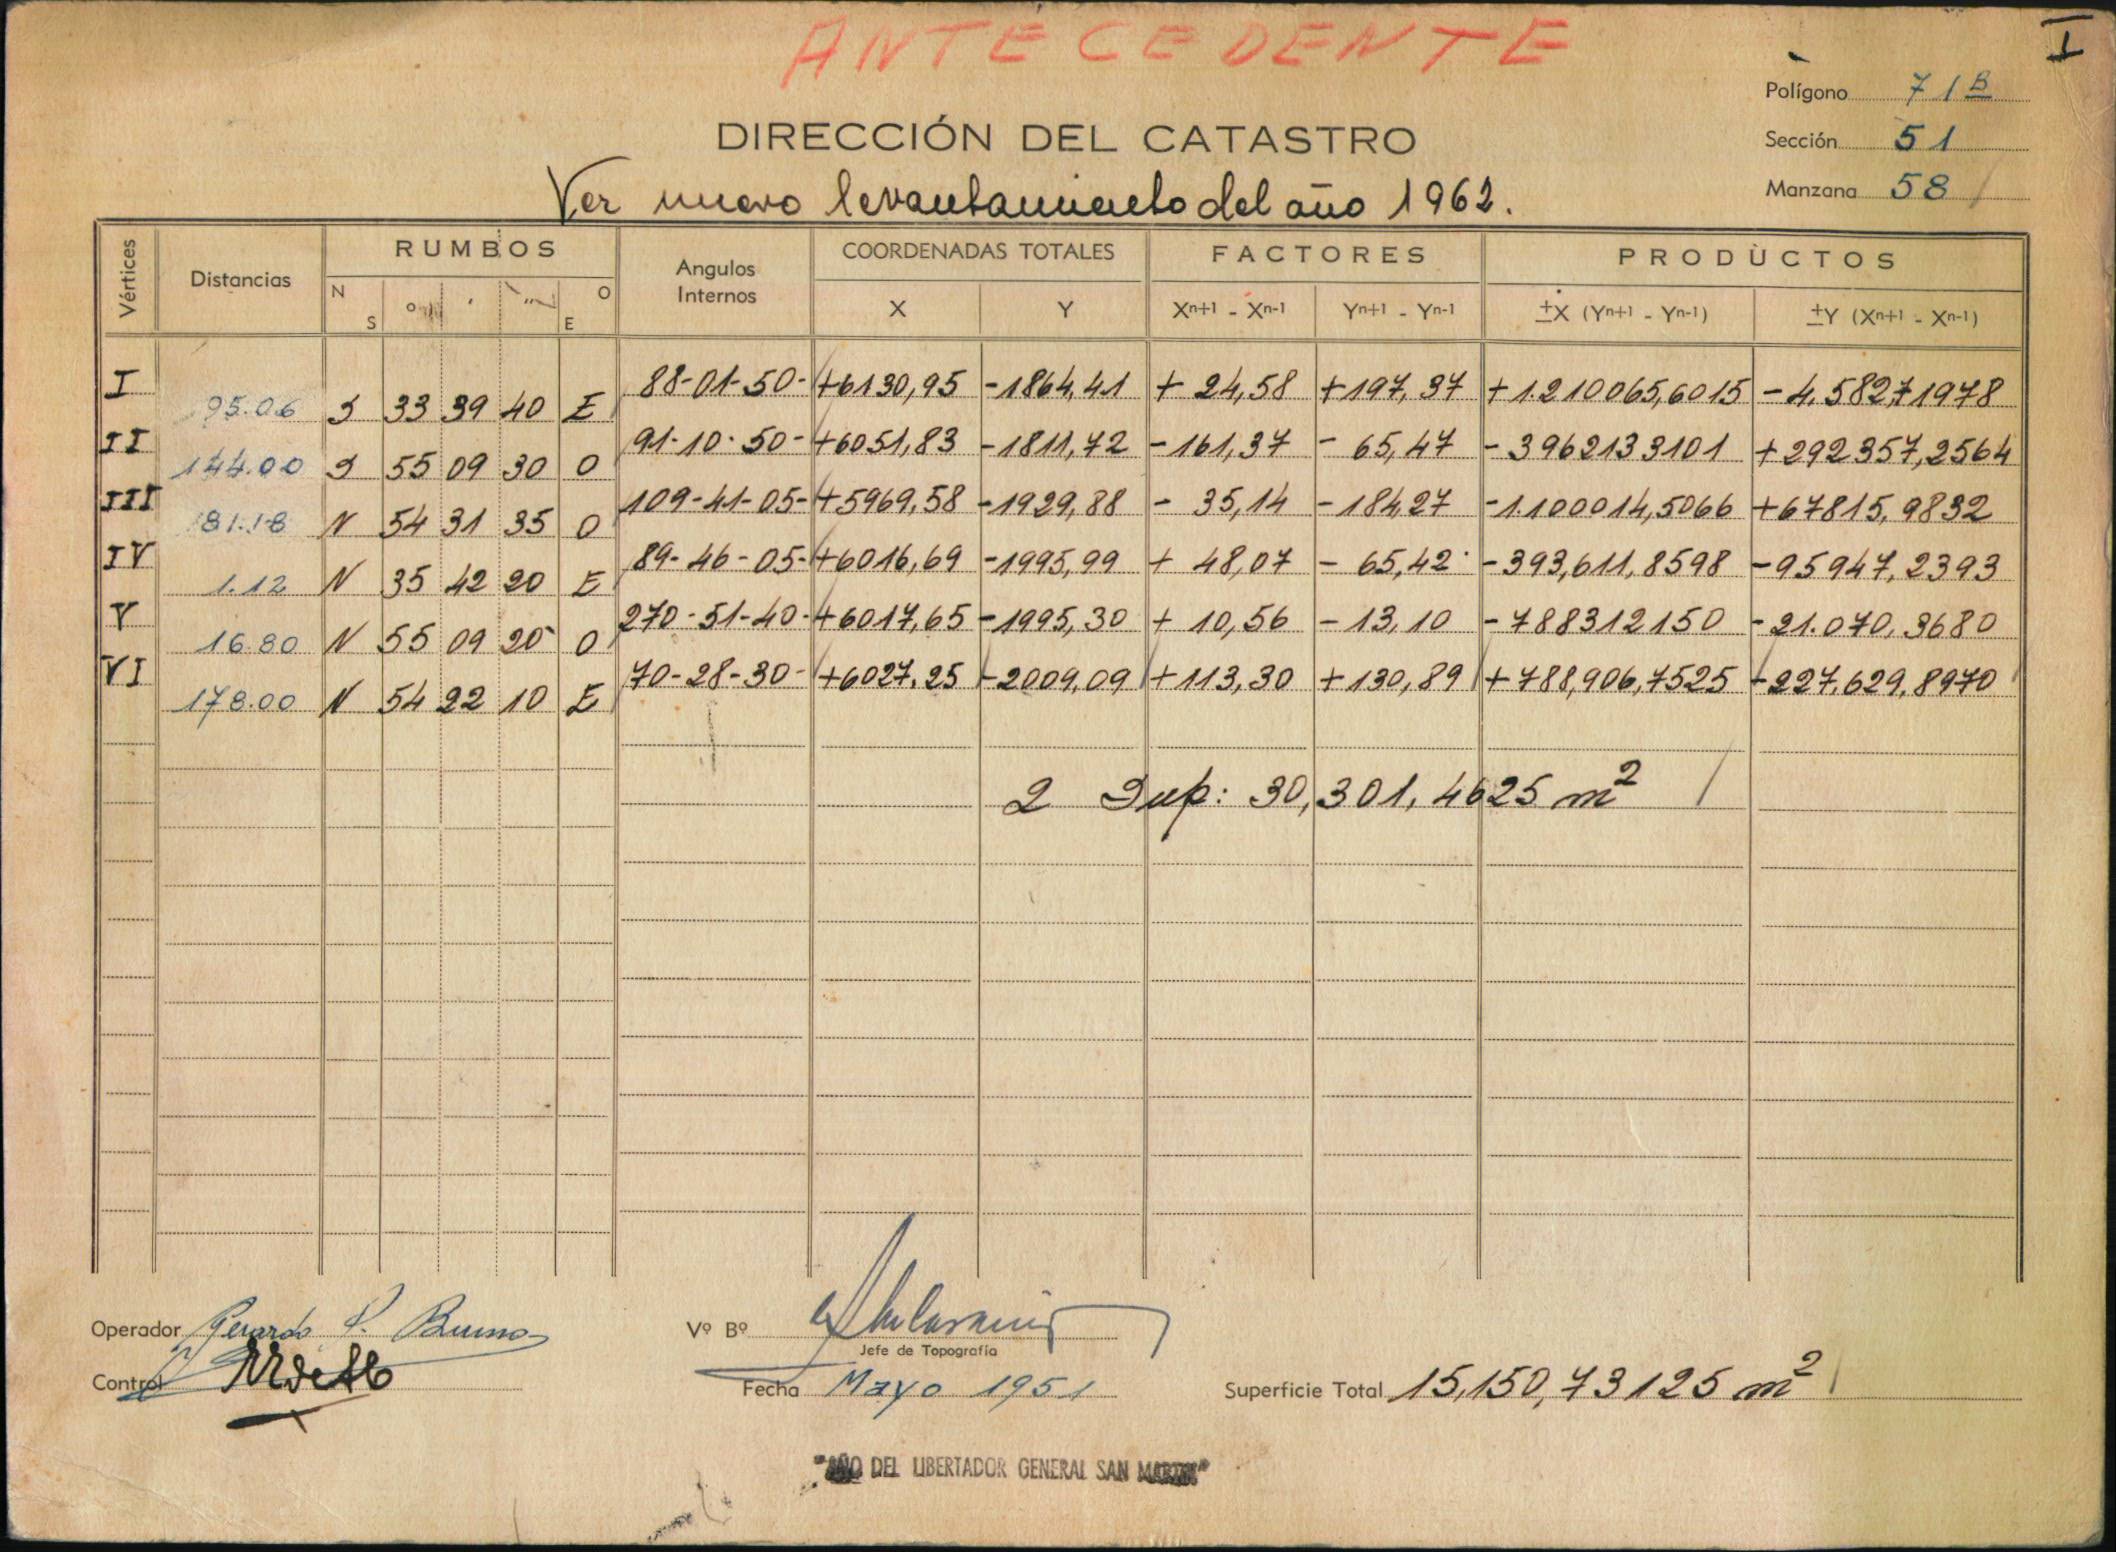 ANTECEDENTE
I
Polígono 71B
DIRECCIÓN DEL CATASTRO
Sección 51
Ver nuevo levantamiento del año 1962.
Manzana 58
Vértices Distancias RUMBOS Angulos Internos COORDENADAS TOTALES FACTORES PRODUCTOS
N S ° ' " O E X Y Xn+1 - Xn-1 Yn+1 - Yn-1 ±X (Yn+1 - Yn-1) ±Y (Xn+1 - Xn-1)
I 95.06 S 33 39 40 E 88-01-50- +6130,95 -1864,41 + 24,58 +197,37 +1.210065,6015 -4.582,71978
II 144.00 S 55 09 30 O 91-10-50- +6051,83 -1811,72 -161,37 - 65,47 -3962133101 +292357,2564
III 81.18 N 54 31 35 O 109-41-05- +5969,58 -1929,88 - 35,14 -184,27 -1.100014,5066 +67815,9832
IV 1.12 N 35 42 20 E 89-46-05- +6016,69 -1995,99 + 48,07 - 65,42 -393,611,8598 -95947,2393
V 16.80 N 55 09 20 O 270-51-40- +6017,65 -1995,30 + 10,56 -13,10 -788312150 -21.070,3680
VI 178.00 N 54 22 10 E 70-28-30- +6027,25 -2009,09 +113,30 +130,89 +788,906,7525 -227.629,8970
2 Sup: 30,301,4625 m²
Operador Gerardo P. Bueno
Control
Vº Bº
Jefe de Topografía
Fecha Mayo 1951
Superficie Total 15,150,73125 m²
"AÑO DEL LIBERTADOR GENERAL SAN MARTIN"